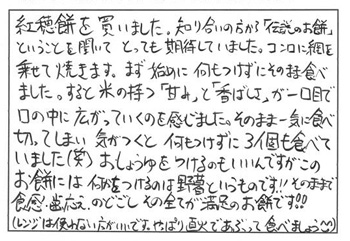 紅穂餅を買いました。知り合いの方から「伝説のお餅」
ということを聞いて とっても期待していました。コンロに網を
乗せて焼きます。まず始めに 何もつけずにそのまま食べ
ました。すると米の持つ「甘み」と「香ばしさ」が一口目で
口の中に広がっていくのを感じました。そのまま一気に食べ
切ってしまい 気がつくと 何もつけずに3個も食べて
いました(笑) おしょうゆをつけるのもいいんですがこの
お餅には 何かをつけるのは野暮というものです!! そのままで
食感・歯応え、のどごし その全てが満足のお餅です!!
(レンジは使わない方がいいです。やっぱり直火であぶって食べましょう♡)